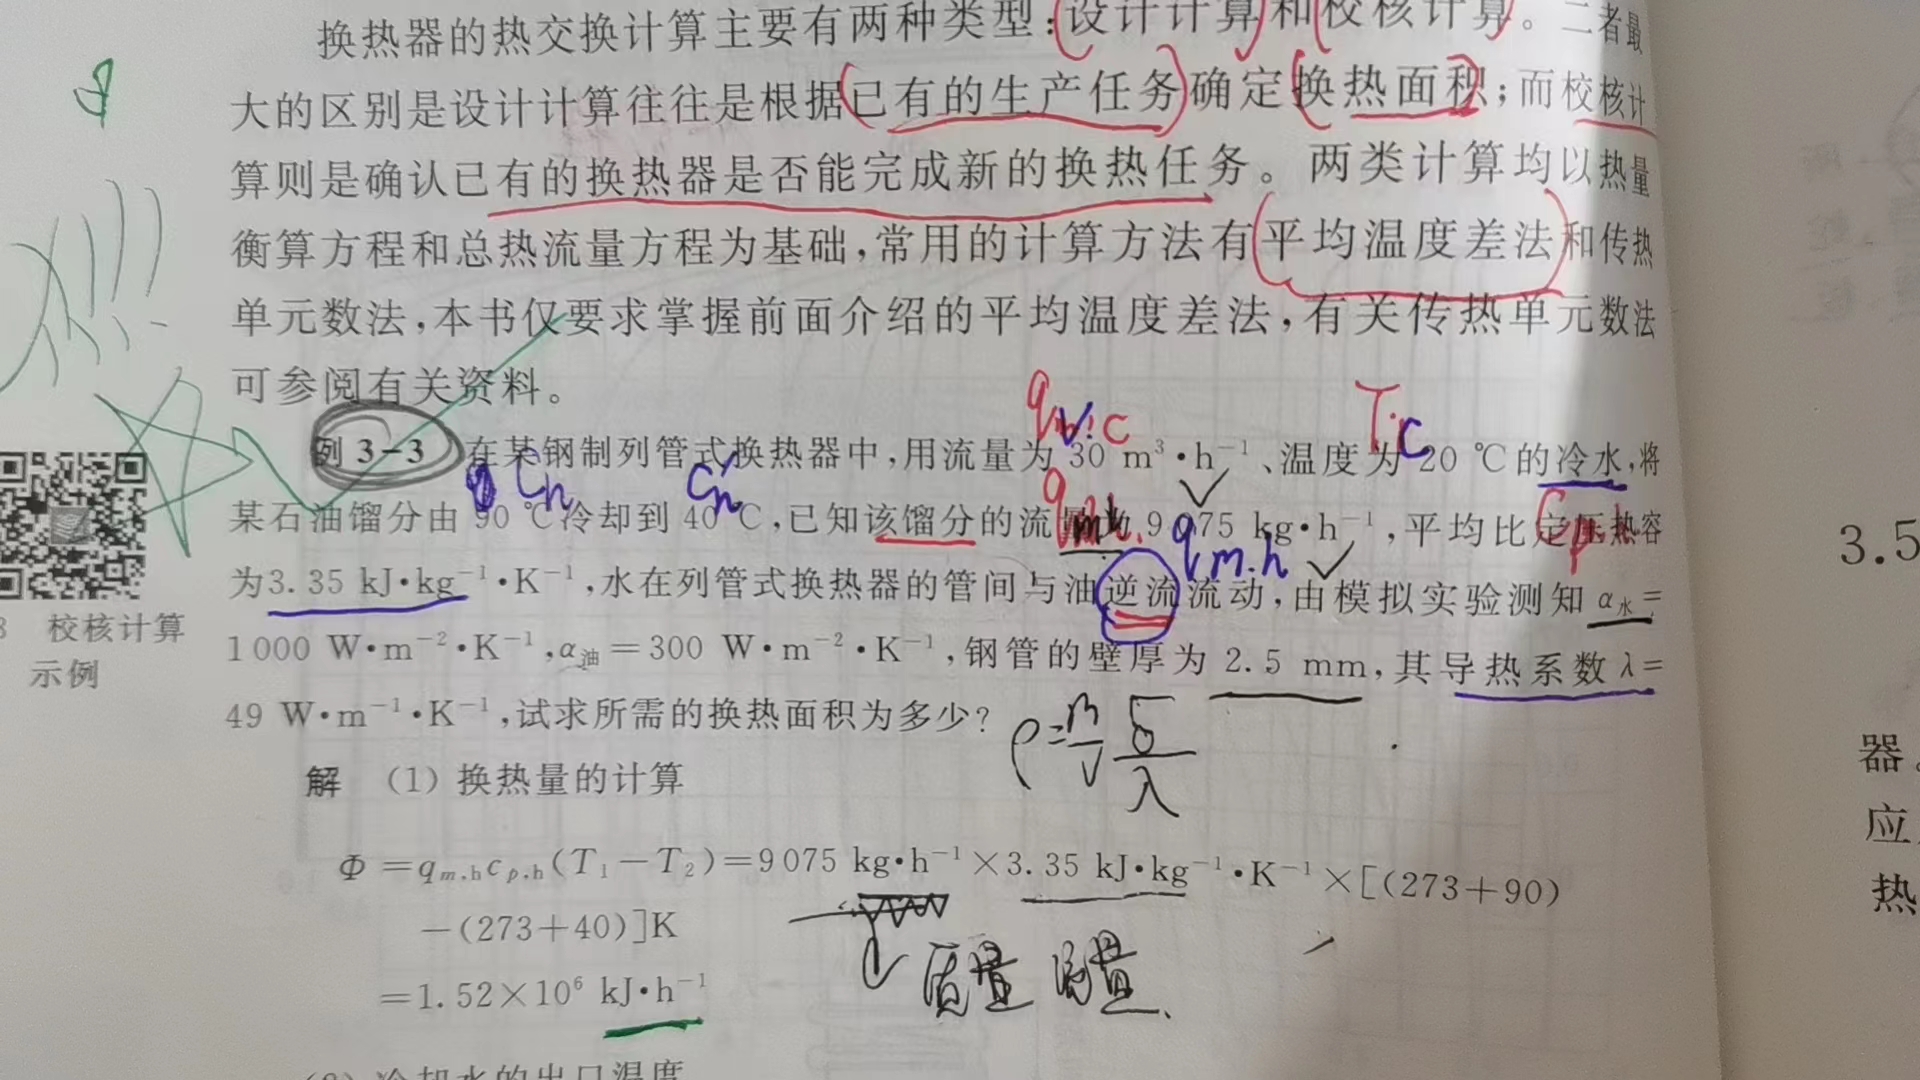 换热器的热交换计算主要有两种类型:设计计算和校核计算。二者最
大的区别是设计计算往往是根据已有的生产任务确定换热面积;而校核计
算则是确认已有的换热器是否能完成新的换热任务。两类计算均以热量
衡算方程和总热流量方程为基础,常用的计算方法有平均温度差法和传热
单元数法,本书仅要求掌握前面介绍的平均温度差法,有关传热单元数法
可参阅有关资料。
qv.c T.c
例 3-3 在某钢制列管式换热器中,用流量为 30 m³·h⁻¹、温度为 20 ℃的冷水,将
某石油馏分由 90 ℃冷却到 40 ℃,已知该馏分的流量为 9 075 kg·h⁻¹,平均比定压热容
qm.h
为3.35 kJ·kg⁻¹·K⁻¹,水在列管式换热器的管间与油逆流流动,由模拟实验测知 α水=
1 000 W·m⁻²·K⁻¹,α油=300 W·m⁻²·K⁻¹,钢管的壁厚为 2.5 mm,其导热系数 λ=
49 W·m⁻¹·K⁻¹,试求所需的换热面积为多少?
ρ=m/V δ/λ
解 (1) 换热量的计算
Φ=qm,hcp,h(T₁-T₂)=9 075 kg·h⁻¹×3.35 kJ·kg⁻¹·K⁻¹×[(273+90)
-(273+40)]K
质量
=1.52×10⁶ kJ·h⁻¹
(2) 冷却水的出口温度
校核计算
示例
3.5
器
应
热